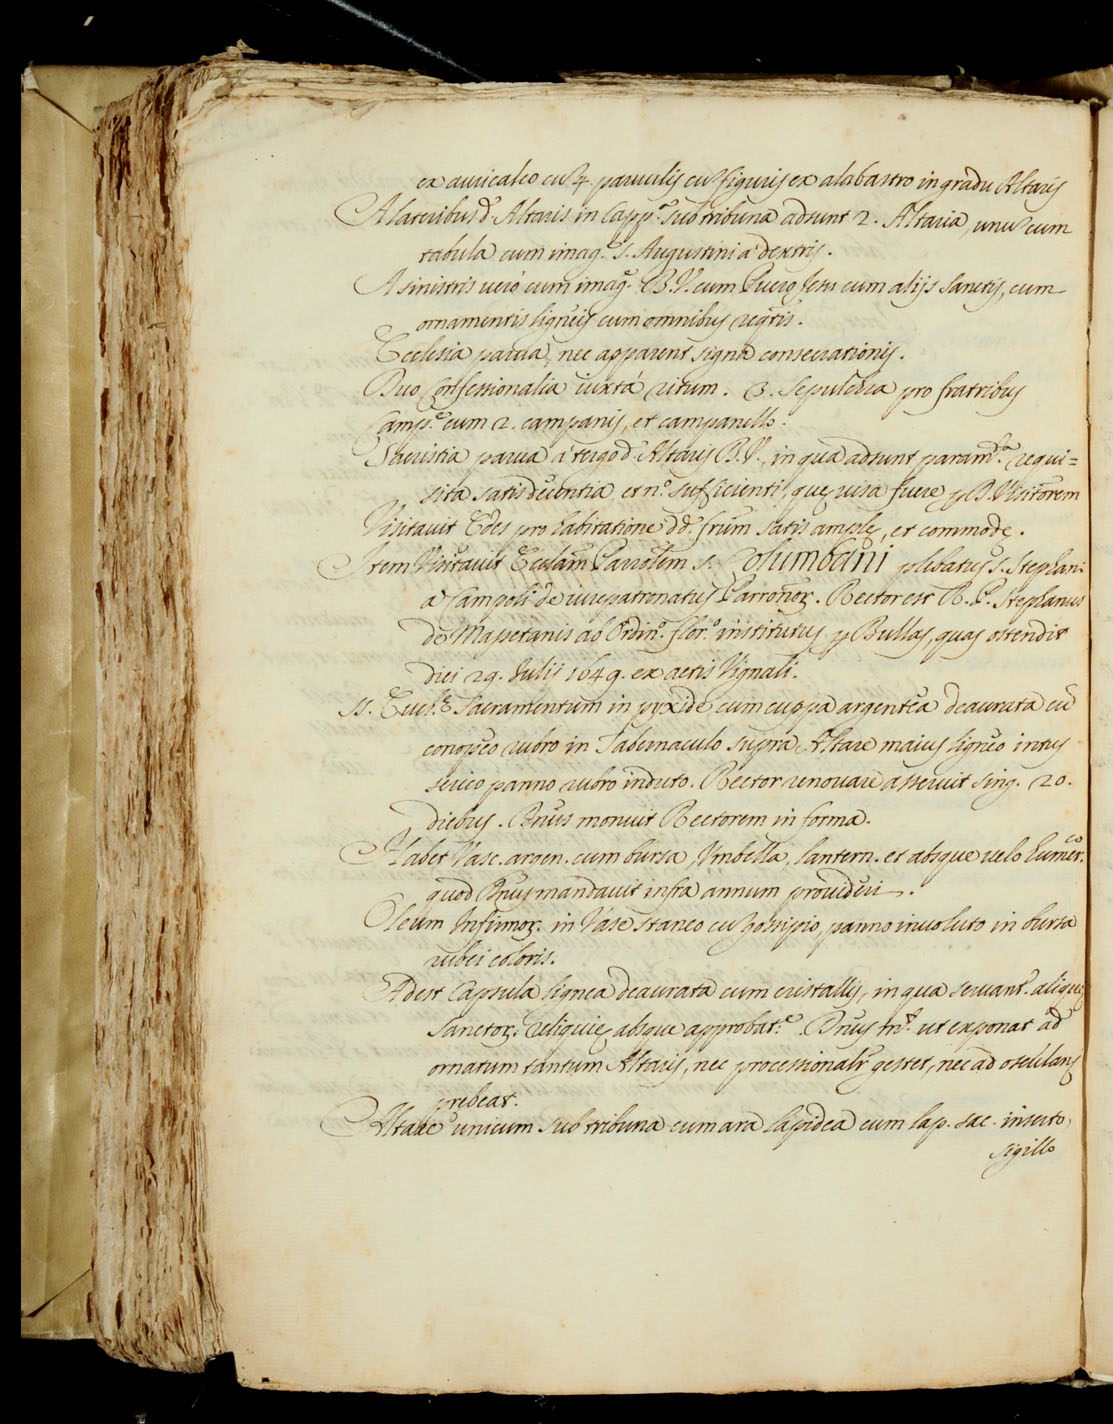 ex auricalco cu' 4. paruulis cu' figuris ex alabastro in gradu Altaris
A lateribus d. Altaris in Capp.ᵃ sub tribuna adsunt 2. Altaria, unu' cum
tabula cum imag.ᵉ s. Augustini à dextris.
A sinistris uerò cum imag.ᵉ B.V. cum Puero Jesu cum alijs Sanctis, cum
ornamentis ligneis cum omnibus reqtis.
Ecclesia parua, nec apparent signa consecrationis.
Duo Confessionalia iuxtà ritum. 3. Sepulchra pro fratribus
Camp.ᵉ cum 2. campanis, et campanello.
Sacristia parua à tergo d. Altaris B.V. in qua adsunt param.ᵗᵃ requi=
sita satis decentia, et n.º sufficienti, que uisa fuere p D. Visitorem
Visitauit Edes pro habitatione dd. frum satis ample, et commode.
Item Visitauit Ecclam Parrolem s. Columbani plebatus s. Stephani
à Campoli de iurepatronatus Parronor. Rector est R. P. Stephanus
de Masetanis ab Ordin.º flor.º institutus p Bullas, quas ostendit
diei 29. Julij 1649. ex actis Vignali.
SS. Euch.ᵉ Sacramentum in pyxide cum cuppa argentea deaurata cu
conopeo rubro in Tabernaculo supra Altare maius ligneo intus
serico panno rubro induto. Rector renouare asseruit sing. 20.
diebus. Dnus monuit Rectorem in forma.
Habet Vasc. argen. cum bursa, Vmbella, lantern. et absque uelo humer.ᶜᵒ
quod Dnus mandauit infra annum prouideri.
Oleum Infirmor. in Vase staneo cu' gossipio panno inuoluto in bursa
rubei coloris.
Adest Capsula lignea deaurata cum cristallis, in qua seruant.ʳ alique
Sanctor. reliquie absque approbat.ᵉ Dnus m.ᵗ ut exponat ad
ornatum tantum Altaris, nec processionalr gestet, nec ad osculans
prebeat.
Altare unicum sub tribuna cum ara lapidea cum lap. sac. inserto,
sigillo